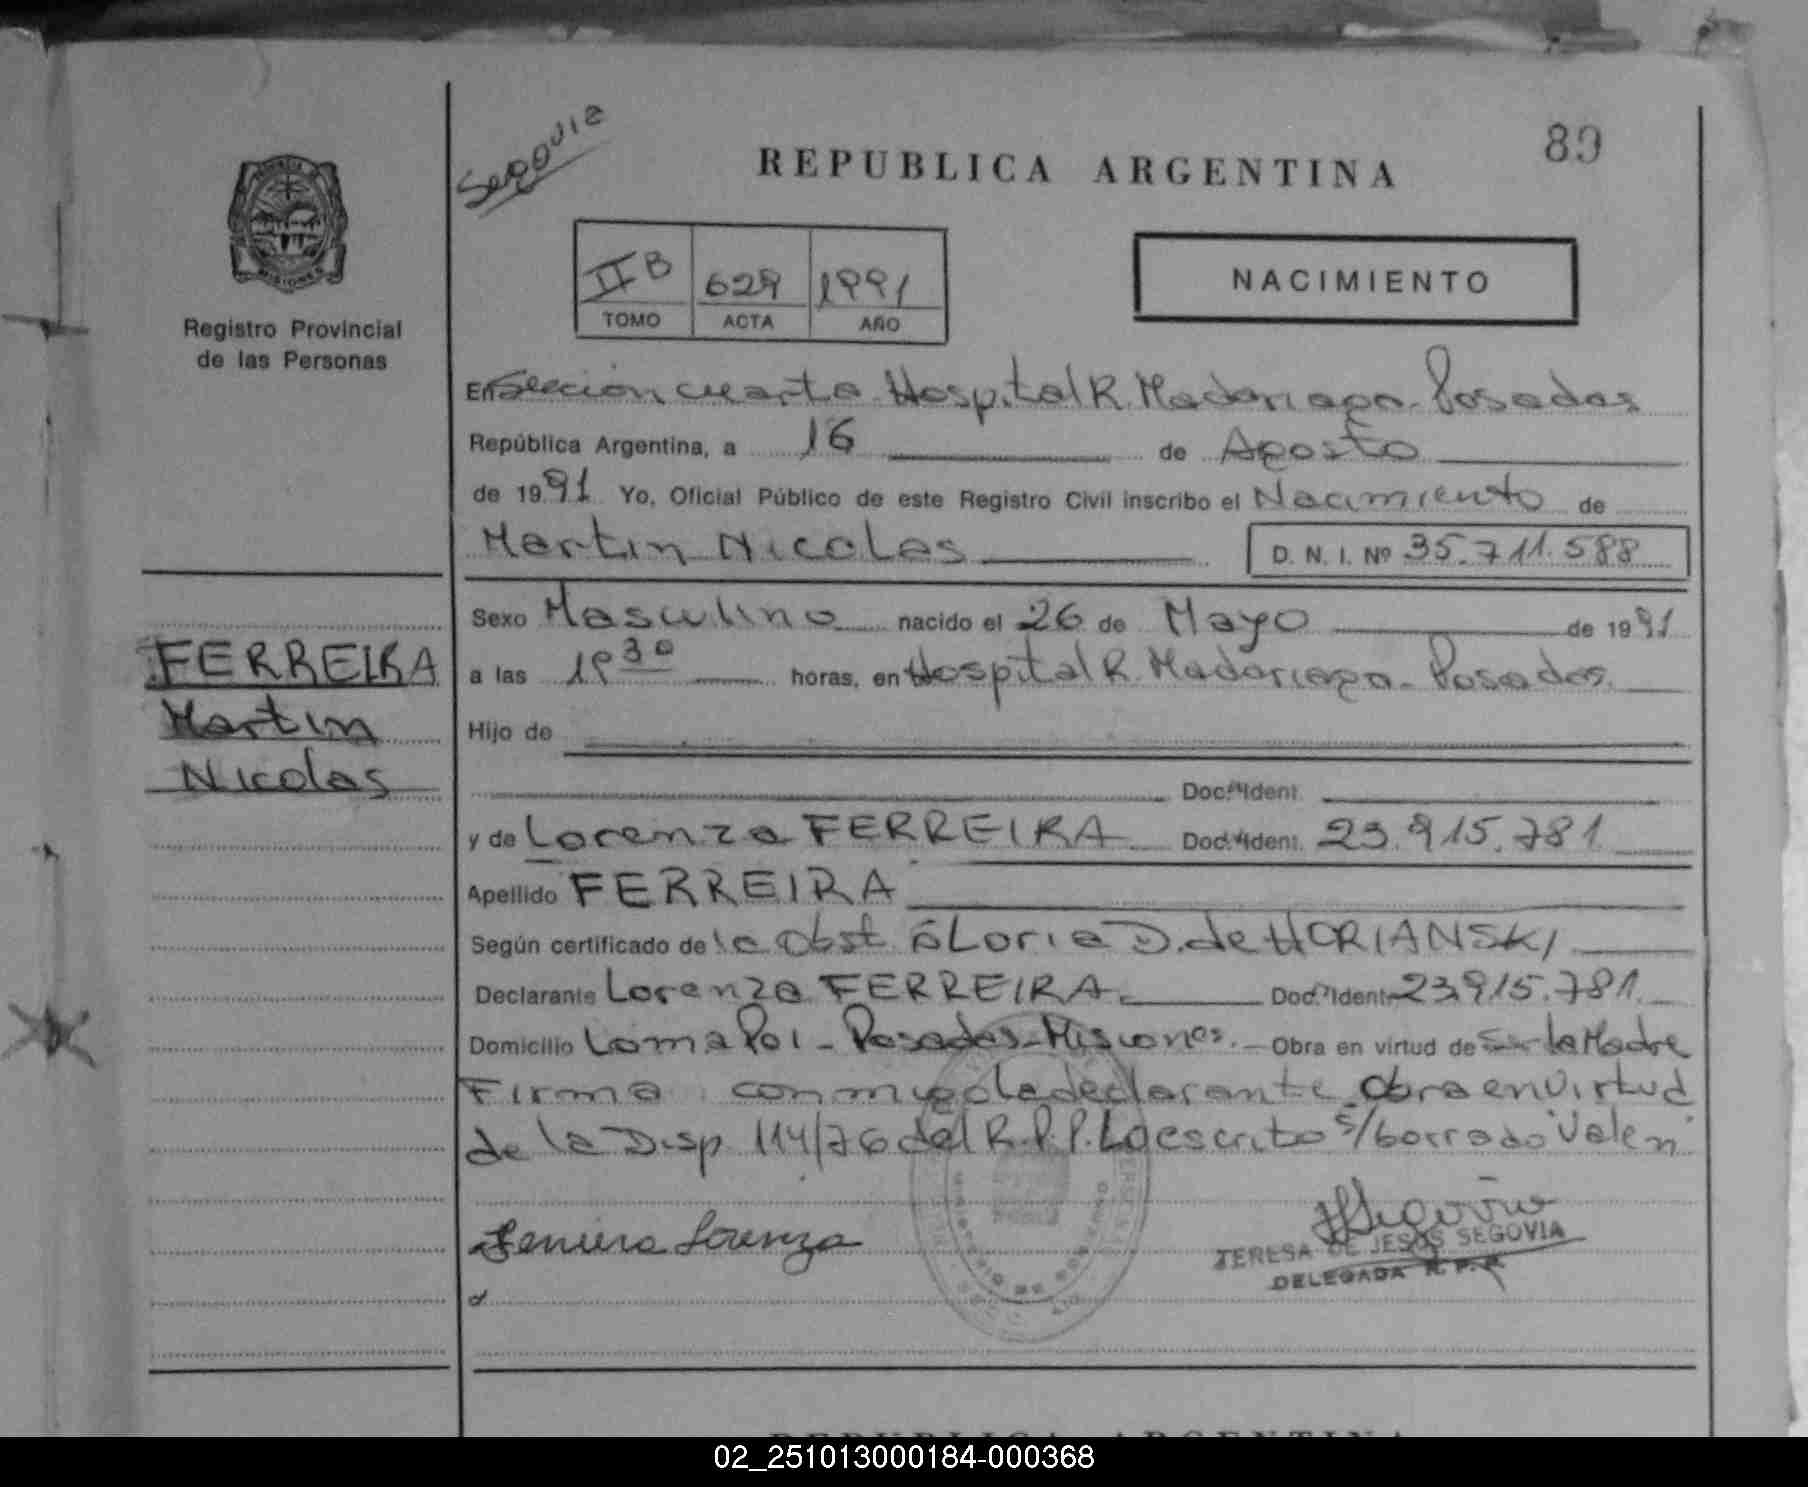 Segovia
REPUBLICA ARGENTINA
89
MISIONES
Registro Provincial
de las Personas
II B 629 1991
TOMO ACTA AÑO
NACIMIENTO
En Sección cuarta Hospital R. Madariaga - Posadas
República Argentina, a 16 de Agosto
de 1991 Yo, Oficial Público de este Registro Civil inscribo el Nacimiento de
Martin Nicolas D. N. I. Nº 35.711.588
FERREIRA
Martin
Nicolas
Sexo Masculino nacido el 26 de Mayo de 1991
a las 19 30 horas, en Hospital R. Madariaga - Posadas.
Hijo de
Doc. Ident.
y de Lorenza FERREIRA Doc. Ident. 23.915.781
Apellido FERREIRA
Según certificado de la Obst. Gloria D. de HORIANSKI
Declarante Lorenza FERREIRA Doc. Ident. 23.915.781.
Domicilio Loma Poi - Posadas - Misiones. Obra en virtud de Ser la Madre
Firma conmigo la declarante Obra en virtud
de la Disp. 114/76 del R.P.P. Lo escrito s/borrado "Valen"
Ferreira Lorenza
TERESA DE JESUS SEGOVIA
DELEGADA R. P. P.
REPUBLICA ARGENTINA
02_251013000184-000368